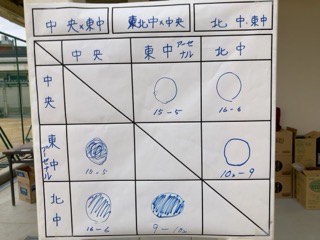 中央×東中
東北中×中央
北中・東中
中央
東中アーセナル
北中
中央
15-5
16-6
東中アーセナル
15-5
10-9
北中
16-6
9-10